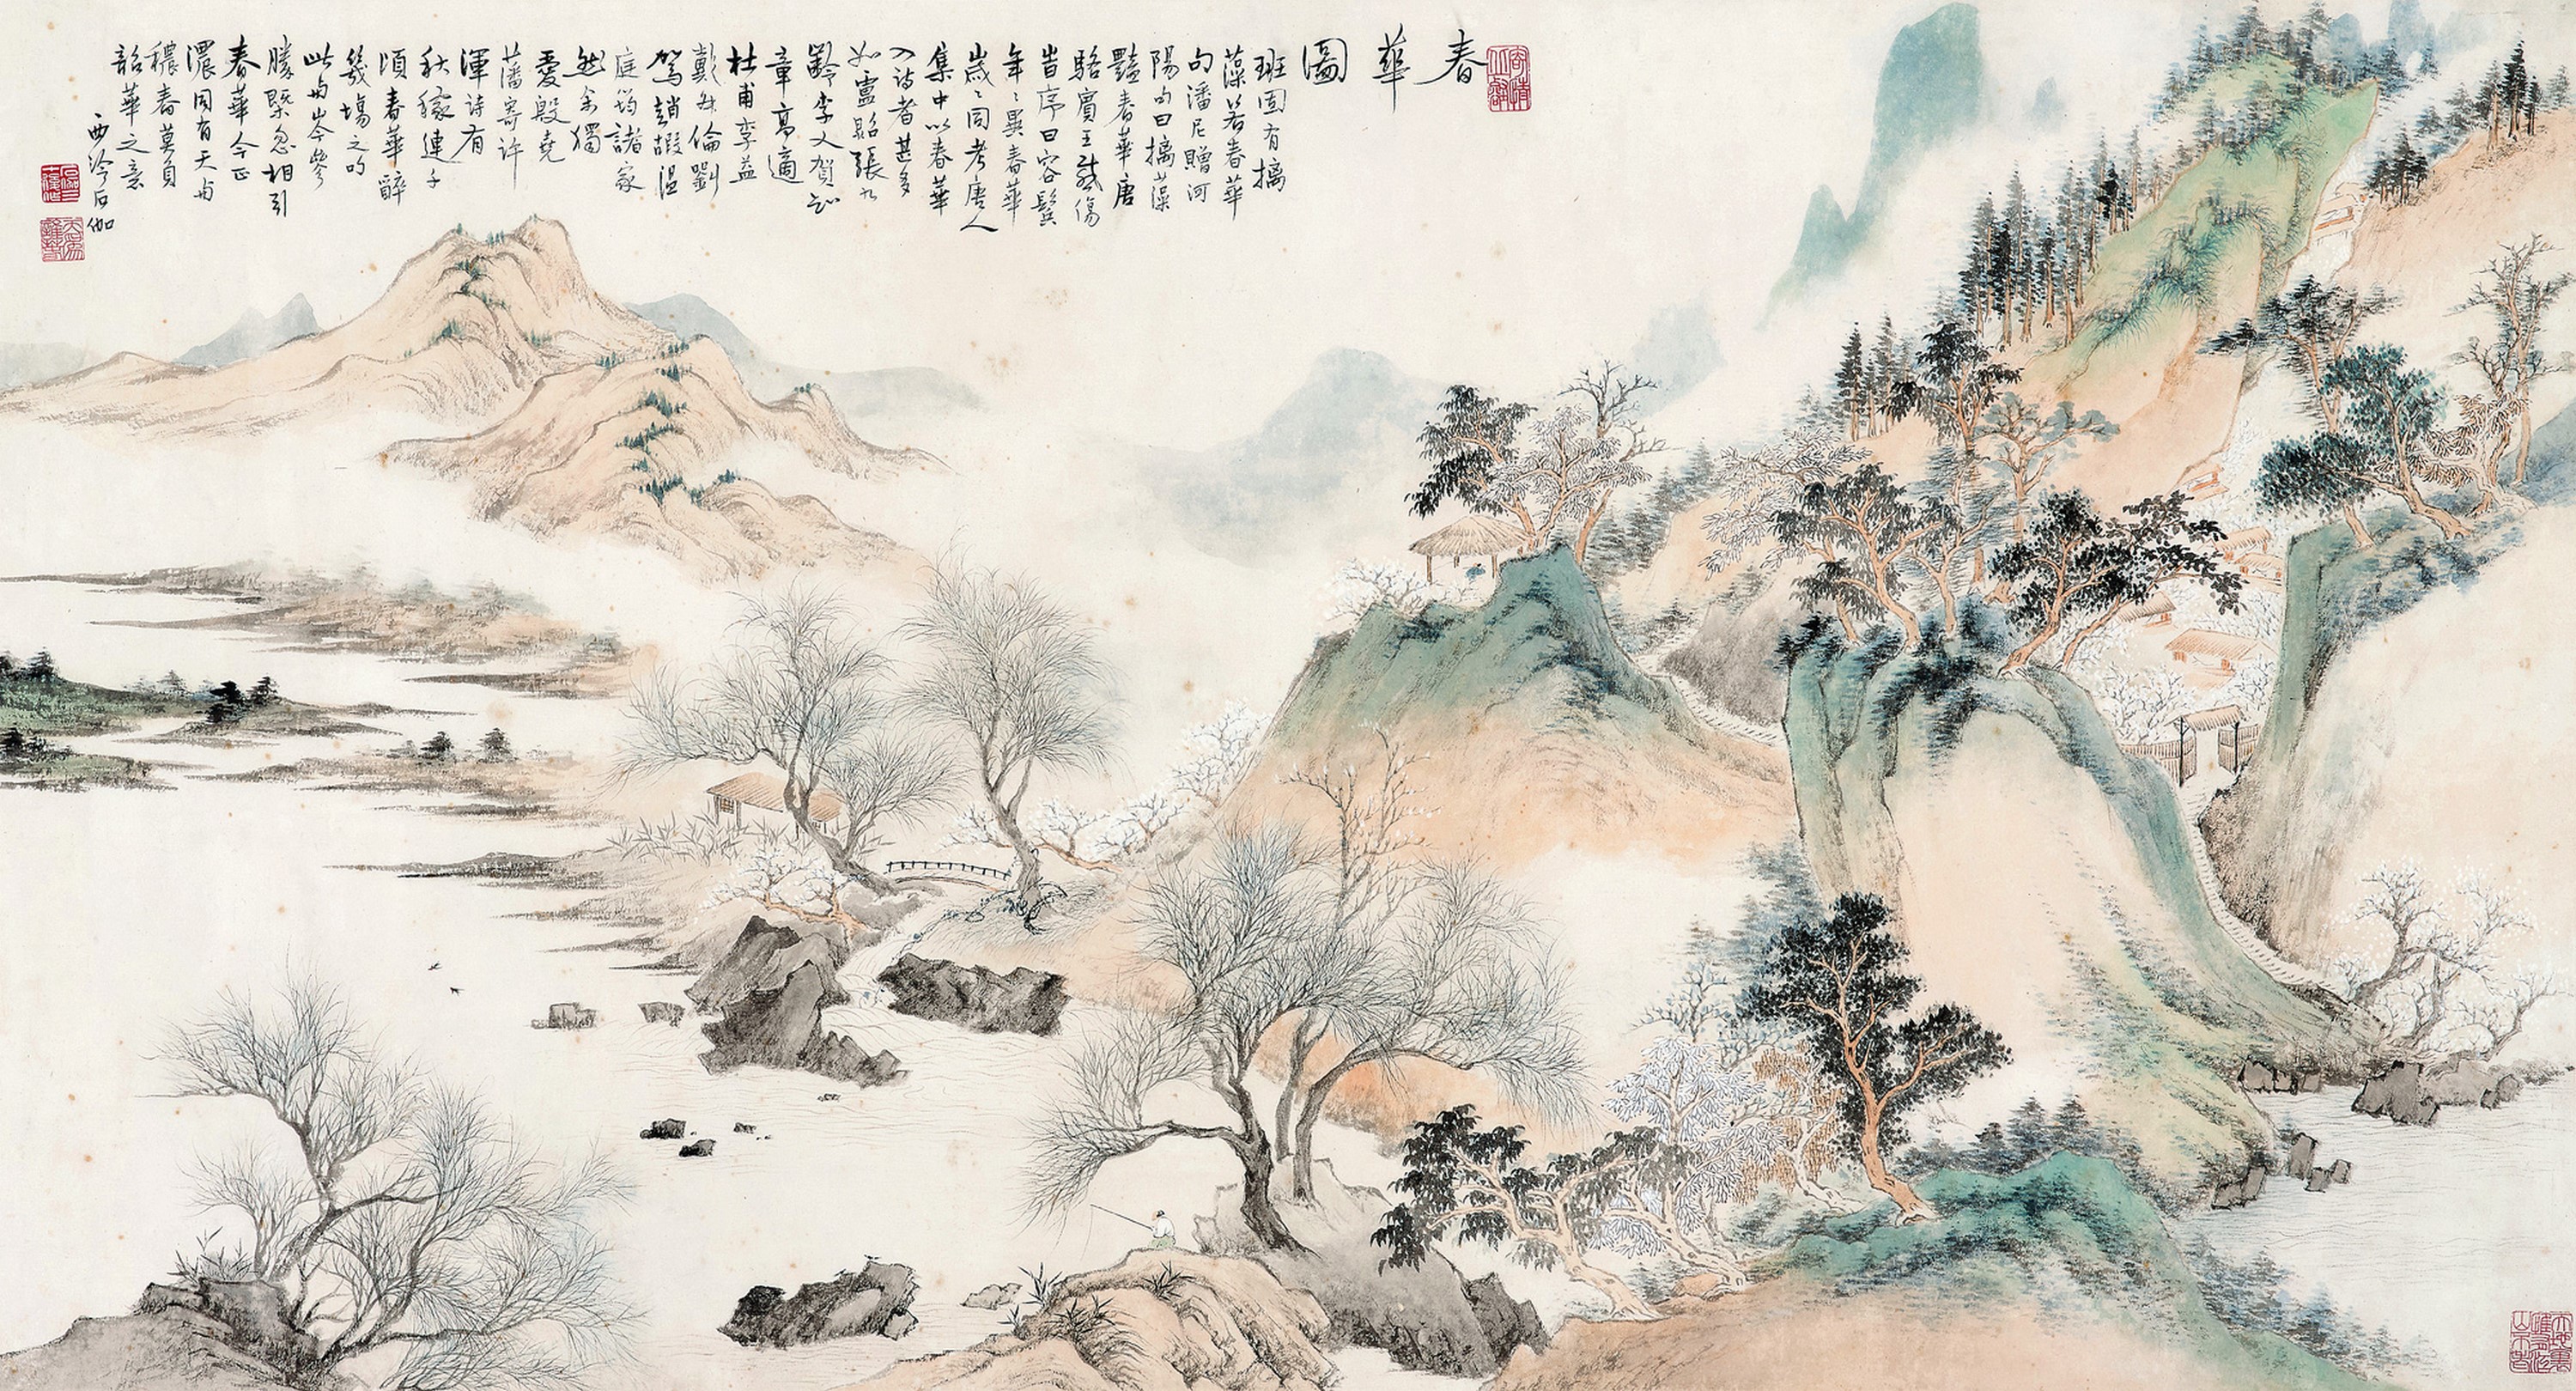 春華圖
班固有摛
藻若春華
句潘尼贈河
陽句曰摛藻
豔春華唐
駱賓王疇
昔序曰容鬢
年〻異春華
歲〻同考唐人
集中以春華
入詩者甚多
如盧照張九
齡李乂賀知
章高適
杜甫李益
戴叔倫劉
駕趙嘏溫
庭筠諸家
然余獨
愛殷堯
藩寄許
渾詩有
秋稼連千
頃春華醉
幾場之句
此與岑參
勝槩忽相引
春華今正
濃同有天與
穠春莫負
韶華之意
西泠石伽